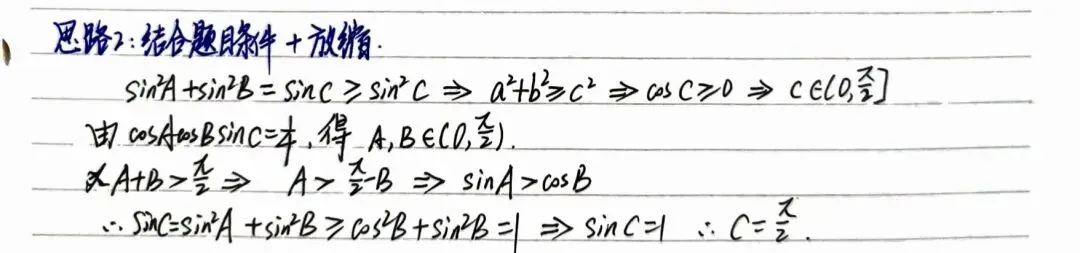 思路2:结合题目条件+放缩.
sin²A+sin²B=sinC≥sin²C⇒a²+b²≥c²⇒cosC≥0⇒C∈(0,π/2]
由cosAcosBsinC=1/4,得A,B∈(0,π/2).
又A+B>π/2⇒A>π/2-B⇒sinA>cosB
∴sinC=sin²A+sin²B≥cos²B+sin²B=1⇒sinC=1∴C=π/2.